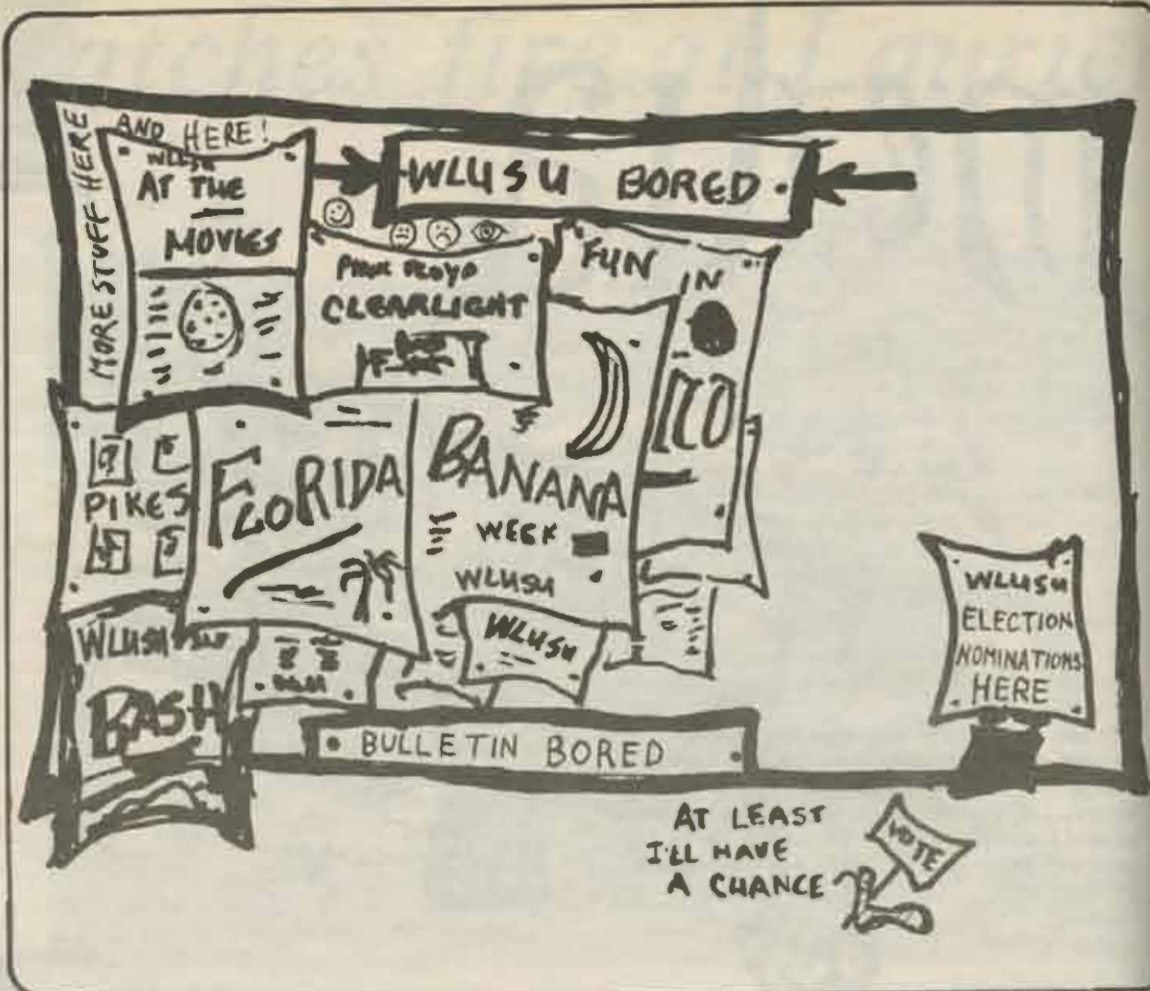 MORE STUFF HERE
AND HERE!
WLUSU
AT THE
MOVIES
WLUSU BORED
PINK FLOYD
CLEARLIGHT
FUN
IN
PIKES
FLORIDA
BANANA
WEEK
WLUSU
WLUSU
BASH
WLUSU
BULLETIN BORED
WLUSU
ELECTION
NOMINATIONS
HERE
AT LEAST
I'LL HAVE
A CHANCE
VOTE